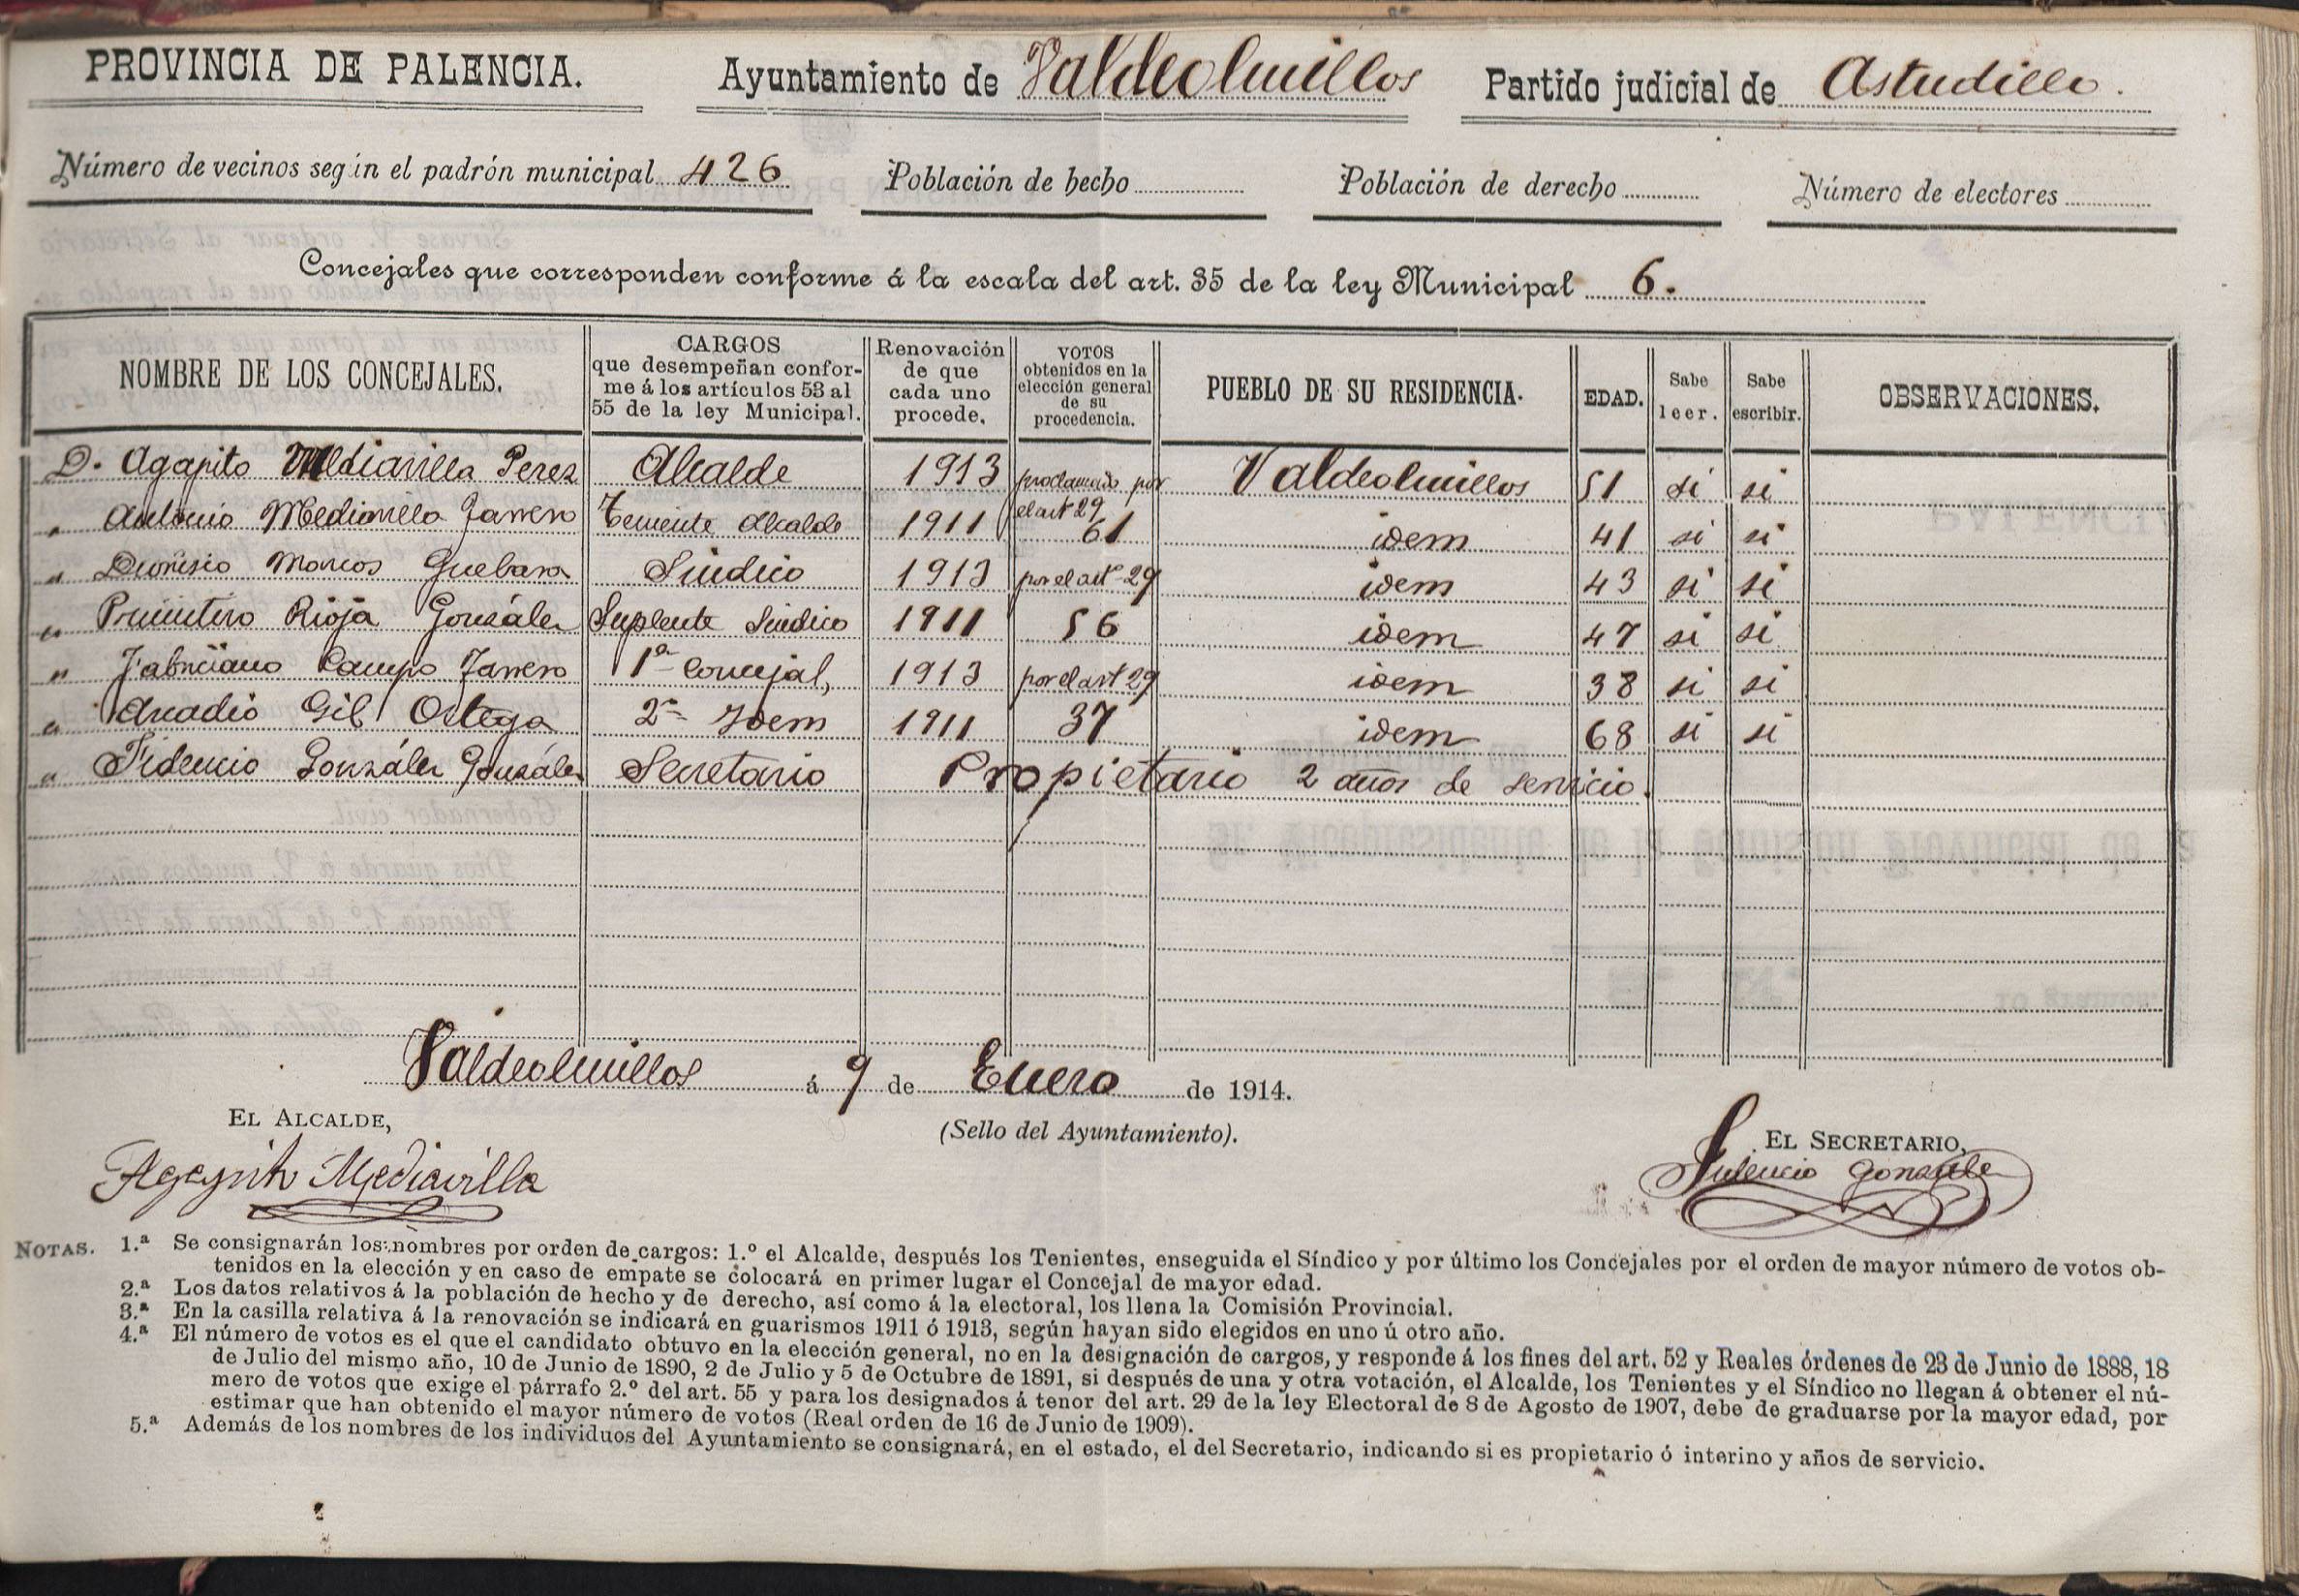 PROVINCIA DE PALENCIA. Ayuntamiento de Valdeolmillos Partido judicial de Astudillo.
Número de vecinos según el padrón municipal 426 Población de hecho Población de derecho Número de electores
Concejales que corresponden conforme á la escala del art. 35 de la ley Municipal 6.
NOMBRE DE LOS CONCEJALES.
CARGOS
que desempeñan confor-
me á los artículos 53 al
55 de la ley Municipal.
Renovación
de que
cada uno
procede.
VOTOS
obtenidos en la
elección general
de su
procedencia.
PUEBLO DE SU RESIDENCIA.
EDAD.
Sabe
leer.
Sabe
escribir.
OBSERVACIONES.
D. Agapito Mediavilla Perez Alcalde 1913 proclamado por el art 29 Valdeolmillos 51 si si
" Antonio Mediavilla Farrero Teniente Alcalde 1911 61 idem 41 si si
" Dionisio Marcos Guebara Sindico 1913 por el art 29 idem 43 si si
" Primitivo Rioja González Suplente Sindico 1911 56 idem 47 si si
" Fabriciano Campo Farrero 1º Concejal, 1913 por el art 29 idem 38 si si
" Arcadio Gil Ortega 2º Idem 1911 37 idem 68 si si
" Fidencio González González Secretario Propietario 2 años de servicio.
Valdeolmillos á 9 de Enero de 1914.
EL ALCALDE,
(Sello del Ayuntamiento).
EL SECRETARIO,
Agapito Mediavilla
Fidencio González
NOTAS. 1.ª Se consignarán los nombres por orden de cargos: 1.º el Alcalde, después los Tenientes, enseguida el Síndico y por último los Concejales por el orden de mayor número de votos ob-
tenidos en la elección y en caso de empate se colocará en primer lugar el Concejal de mayor edad.
2.ª Los datos relativos á la población de hecho y de derecho, así como á la electoral, los llena la Comisión Provincial.
3.ª En la casilla relativa á la renovación se indicará en guarismos 1911 ó 1913, según hayan sido elegidos en uno ú otro año.
4.ª El número de votos es el que el candidato obtuvo en la elección general, no en la designación de cargos, y responde á los fines del art. 52 y Reales órdenes de 23 de Junio de 1888, 18
de Julio del mismo año, 10 de Junio de 1890, 2 de Julio y 5 de Octubre de 1891, si después de una y otra votación, el Alcalde, los Tenientes y el Síndico no llegan á obtener el nú-
mero de votos que exige el párrafo 2.º del art. 55 y para los designados á tenor del art. 29 de la ley Electoral de 8 de Agosto de 1907, debe de graduarse por la mayor edad, por
estimar que han obtenido el mayor número de votos (Real orden de 16 de Junio de 1909).
5.ª Además de los nombres de los individuos del Ayuntamiento se consignará, en el estado, el del Secretario, indicando si es propietario ó interino y años de servicio.